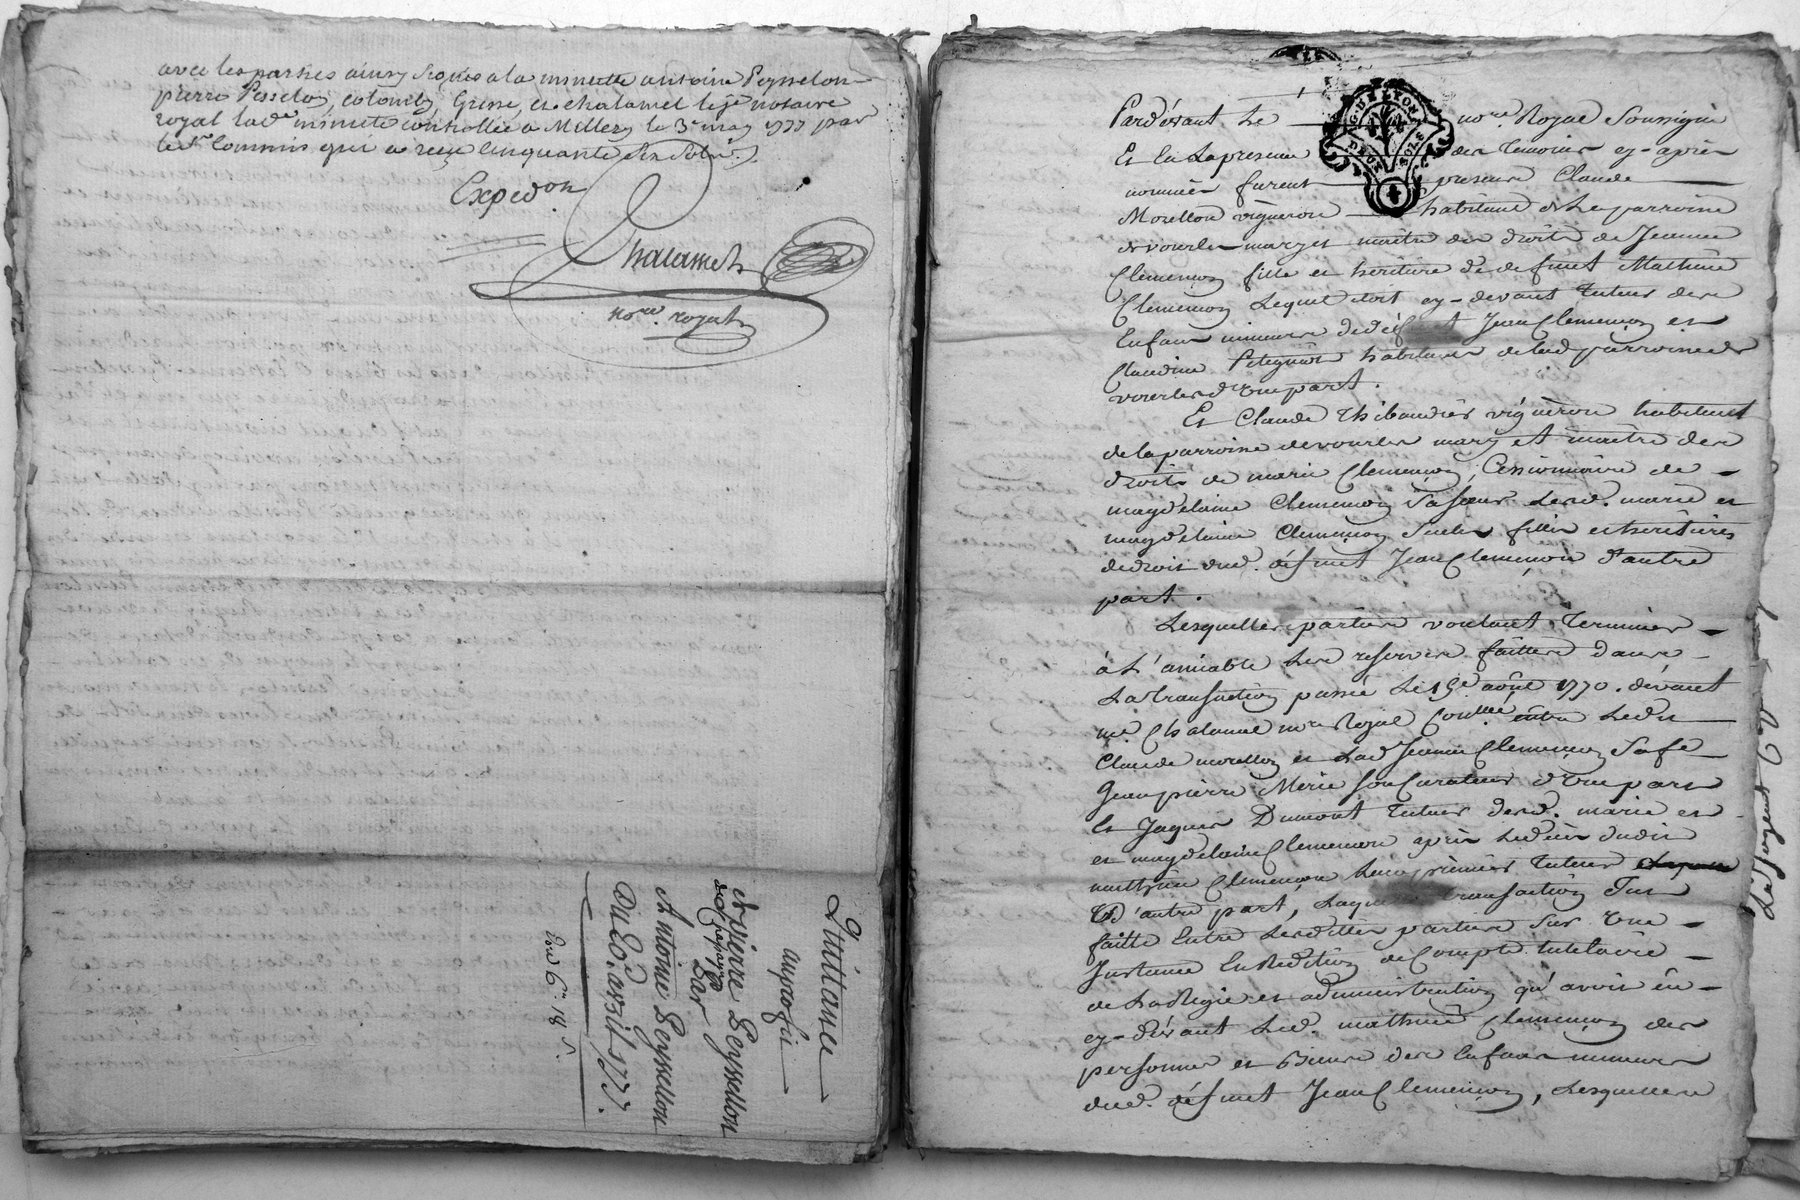 avec les parties ainsy signés a la minutte antoine Peysselon
pierre Pesselon, colomby, Grisse, et chalamel le je notaire
royal lad.e minute controllée a Millery le 3e may 1777 par
le Sr. Commis qui a reçu Cinquante six sols.
Expedon
Chalamel
nore. royal
Quittance
auprofit
de pierre Peyssellon
Par
Antoine Peyssellon
Du 20. avril 1777.
6 18 s.
GUE LYON
DEUX SOLS
Pardevant Le nore. Royal Soussigné
Et En La presence des Temoins cy-après
nommés furent presens Claude
Morellon vigneron habitant de La parroisse
de vourles mary et maitre des droits de Jeanne
Clemençon fille et héritière de defunt Mathieu
Clemençon Lequel étoit cy-devant Tuteur des
Enfans mineurs de défunt Jean Clemençon et
Claudine habitans de lad. parroisse de
vourles d'une part.
Et Claude Thibaudier vigneron habitant
de la parroisse de vourles mary et maître des
droits de marie Clemençon, Cessionnaire de
magdelaine Clemençon Sa soeur Lesd. marie et
magdelaine Clemençon Seules filles et heritières
de droit dud. défunt Jean Clemençon d'autre
part.
Lesquelles parties voulant Terminer
à L'amiable Les reserves faittes dans
La transaction passée Le 19e. août 1770. devant
me. Chalamel nre Royal Entre Ledit
Claude morellon et Lad. Jeanne Clemençon Sa fe
Jean pierre Mérie son Curateur d'une part
Et Jaques Dumont Tuteur desd. marie et
et magdelaine Clemençon après Le décès dudit
mathieu Clemençon Leur premier Tuteur
d'autre part, Laquelle transaction fut
faitte Entre Lesdittes parties Sur une
Instance En Redition de Compte tutelaire
de La Regie et administration qu'avoit eu
cy-devant Led. mathieu Clemençon des
personnes et Biens des Enfans mineurs
dud. défunt Jean Clemençon, Lesquelles